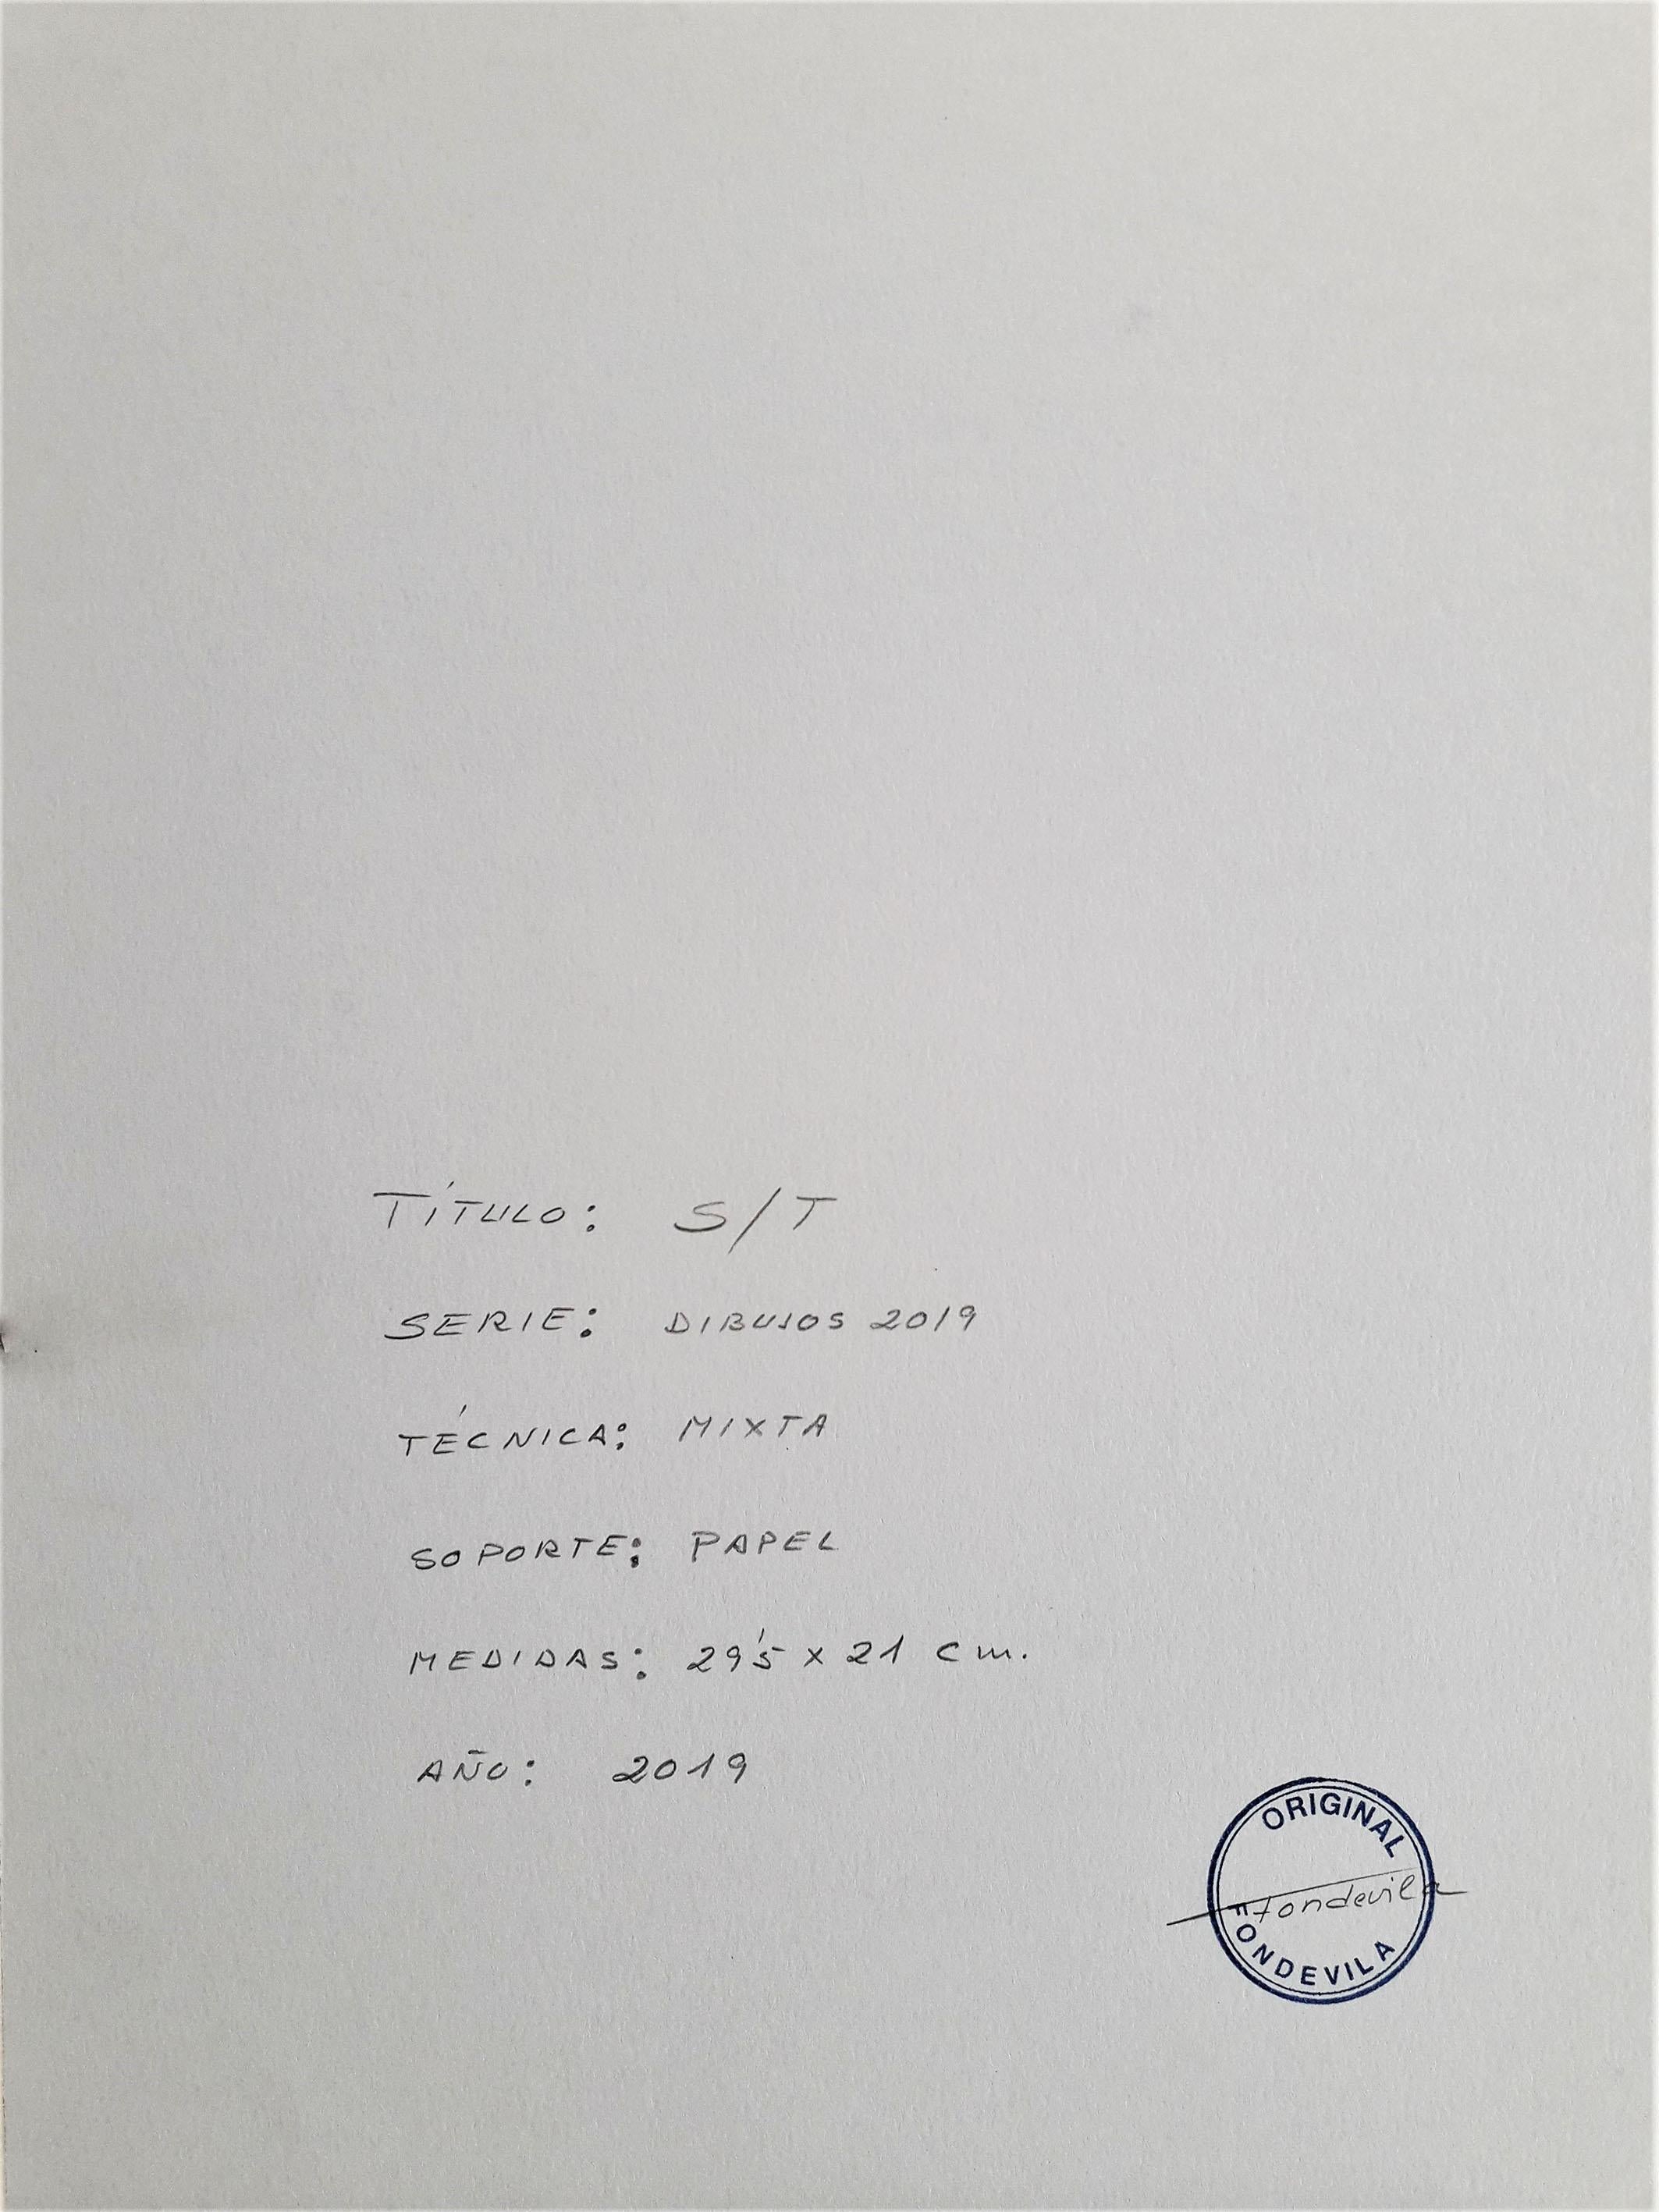 TÍTULO: S/T
SERIE: DIBUJOS 2019
TÉCNICA: MIXTA
SOPORTE: PAPEL
MEDIDAS: 29'5 x 21 cm.
AÑO: 2019
ORIGINAL
Fondevila
FONDEVILA